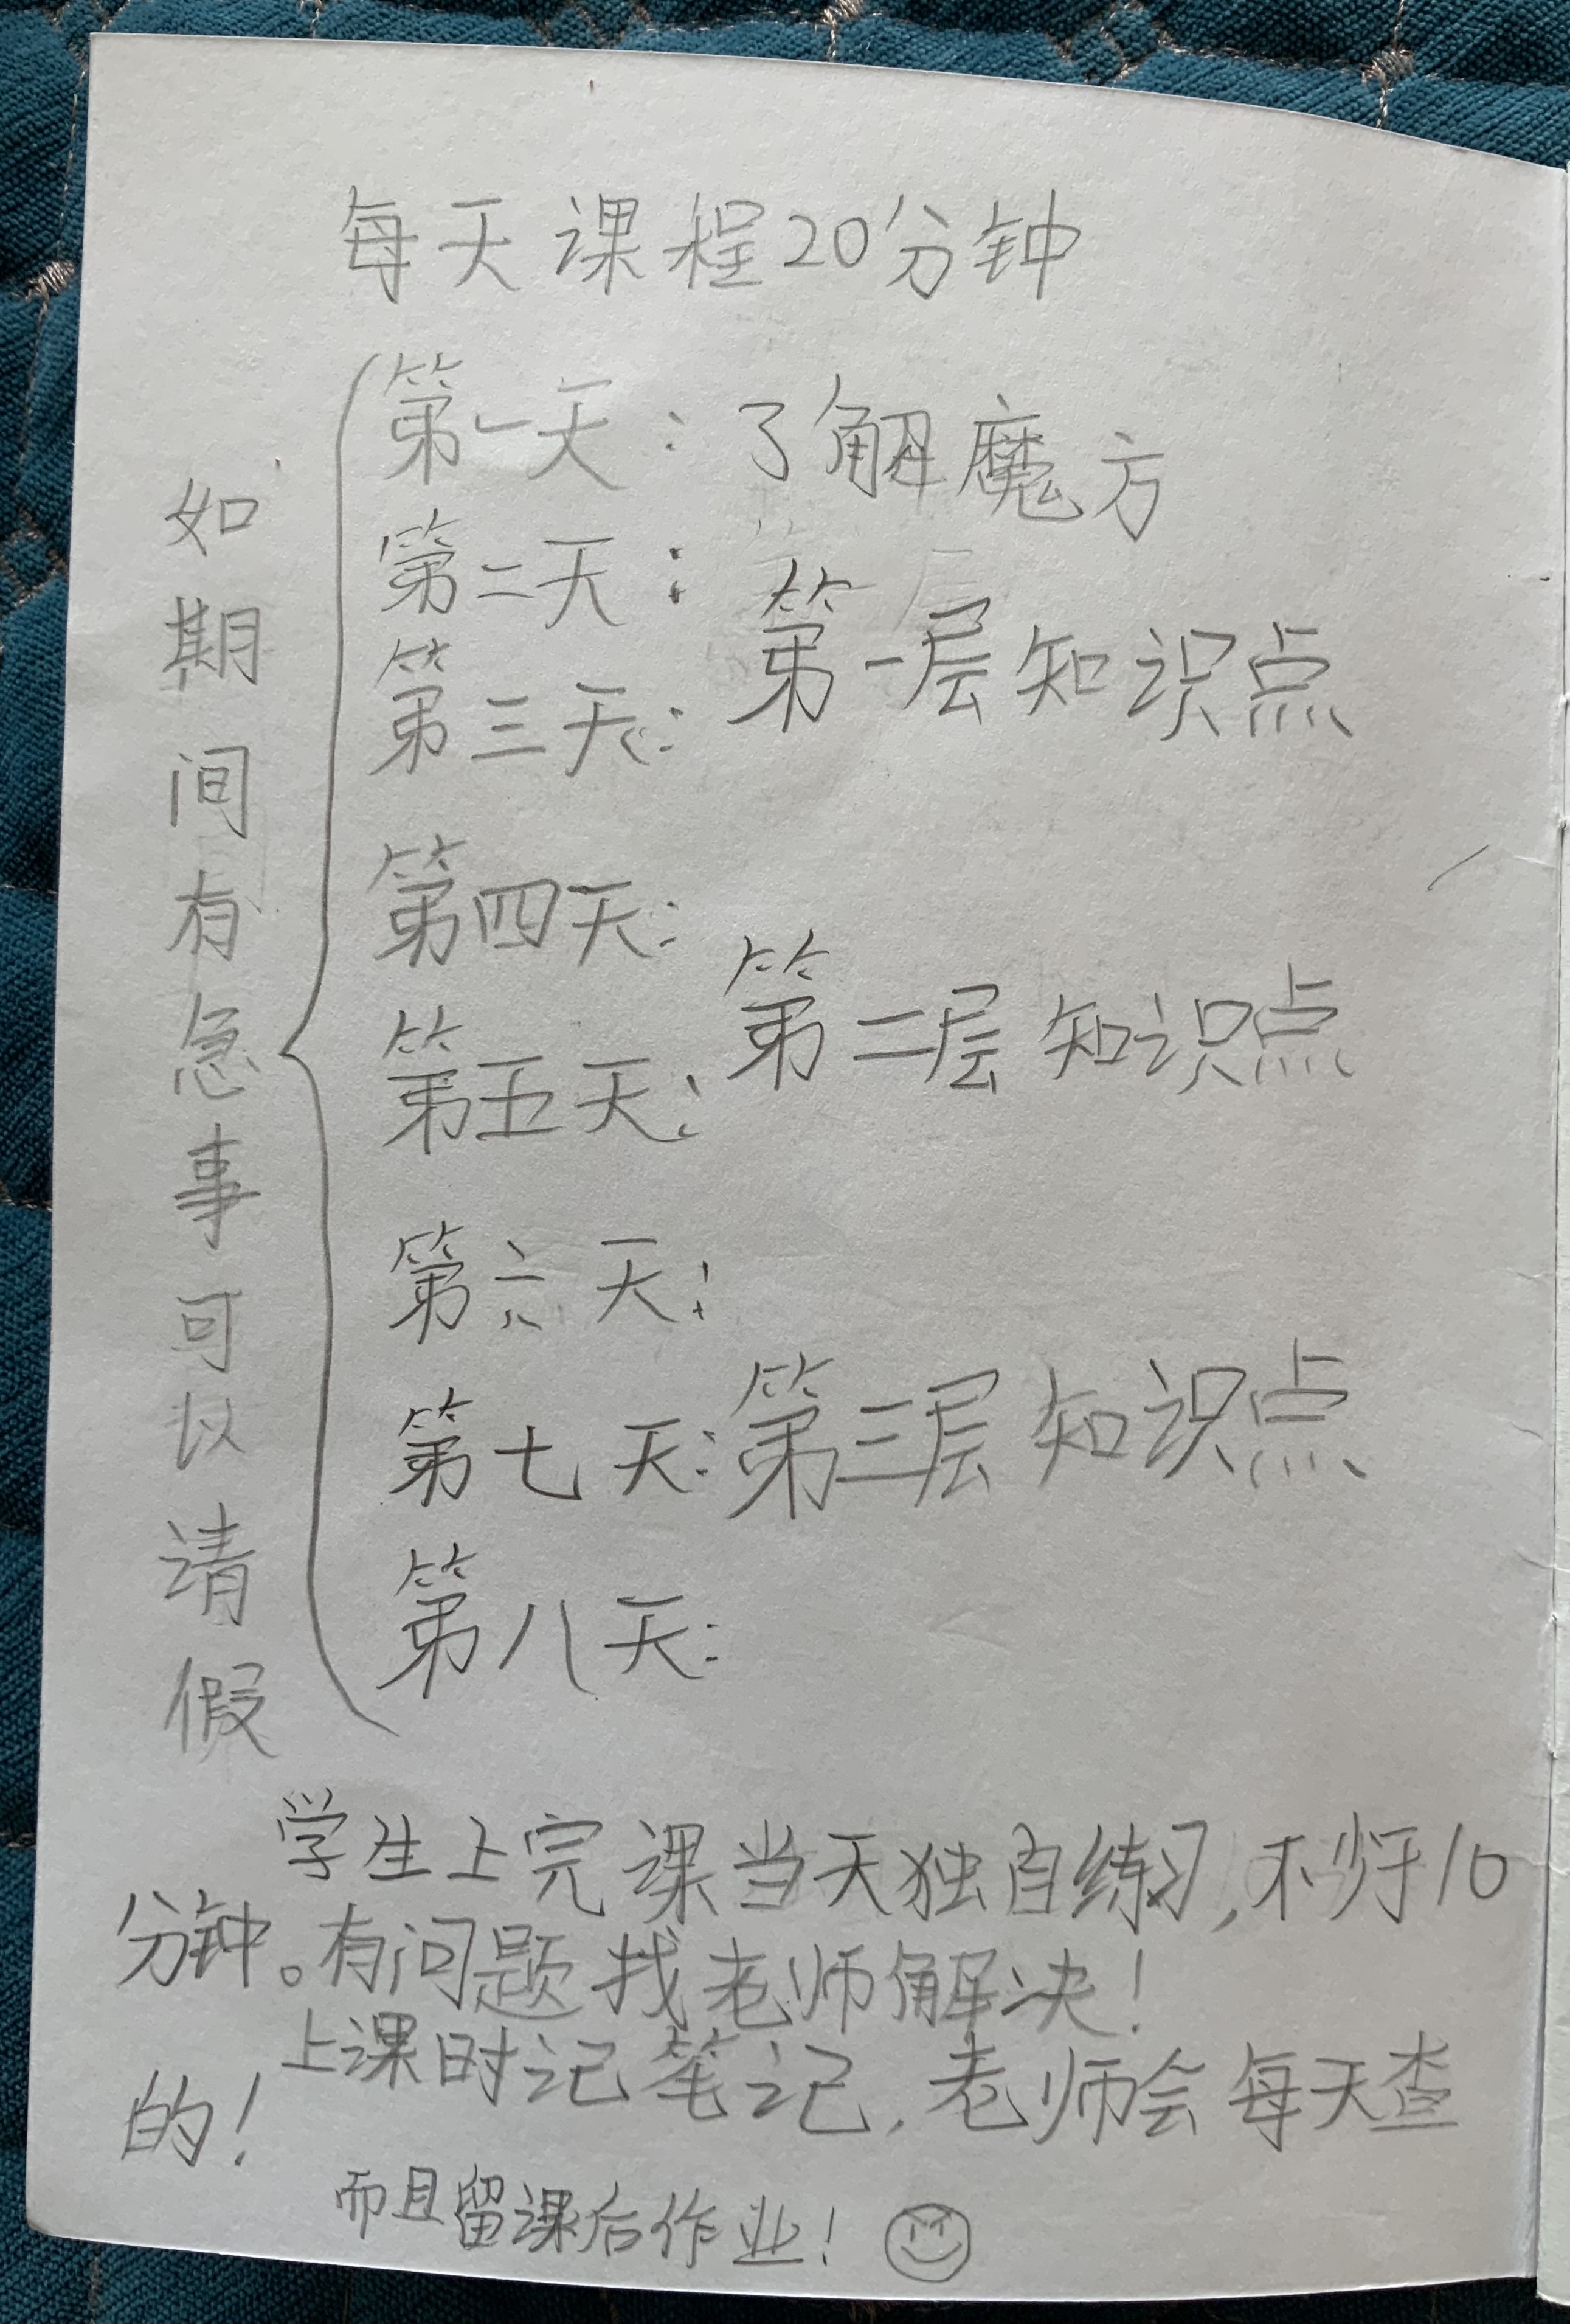 每天课程20分钟
如期间有急事可以请假
第一天：了解魔方
第二天：
第一层知识点
第三天：
第四天：
第二层知识点
第五天：
第六天：
第七天：第三层知识点
第八天：
学生上完课当天独自练习，不少于10
分钟。有问题找老师解决！
上课时记笔记，老师会每天查
的！
而且留课后作业！